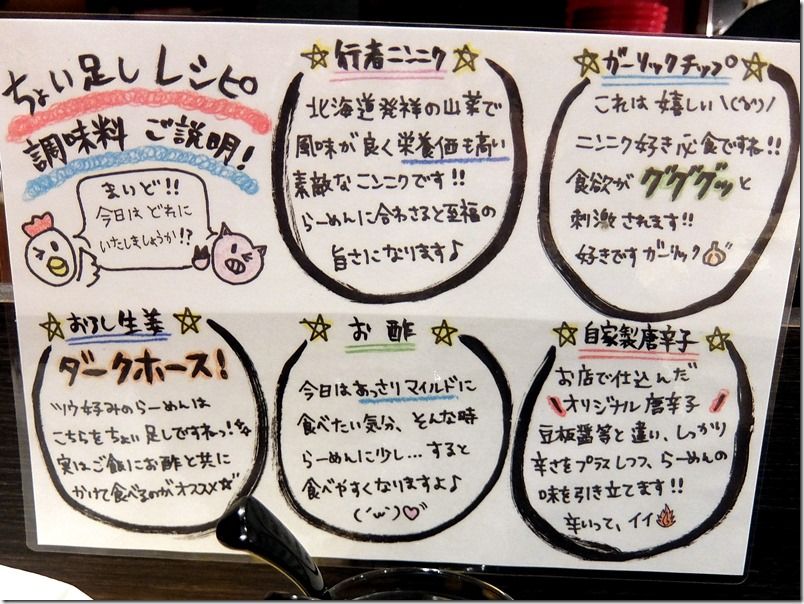 ちょい足しレシピ
調味料 ご説明!
まいど!!
今日はどれに
いたしましょうか!?
行者ニンニク
北海道発祥の山菜で
風味が良く栄養価も高い
素敵なニンニクです!!
らーめんに合わさると至福の
旨さになります♪
ガーリックチップ
これは嬉しい\(^o^)/
ニンニク好き必食ですね!!
食欲がググググッと
刺激されます!!
好きですガーリック
おろし生姜
ダークホース!
ツウ好みのらーめんは
こちらをちょい足しですねっ!
実はご飯にお酢と共に
かけて食べるのがオススメ
お酢
今日はあっさりマイルドに
食べたい気分、そんな時
らーめんに少し…すると
食べやすくなりますよ♪
(´ω`)♡
自家製唐辛子
お店で仕込んだ
オリジナル唐辛子
豆板醤等と違い、しっかり
辛さをプラスしつつ、らーめんの
味を引き立てます!!
辛いって、イイ